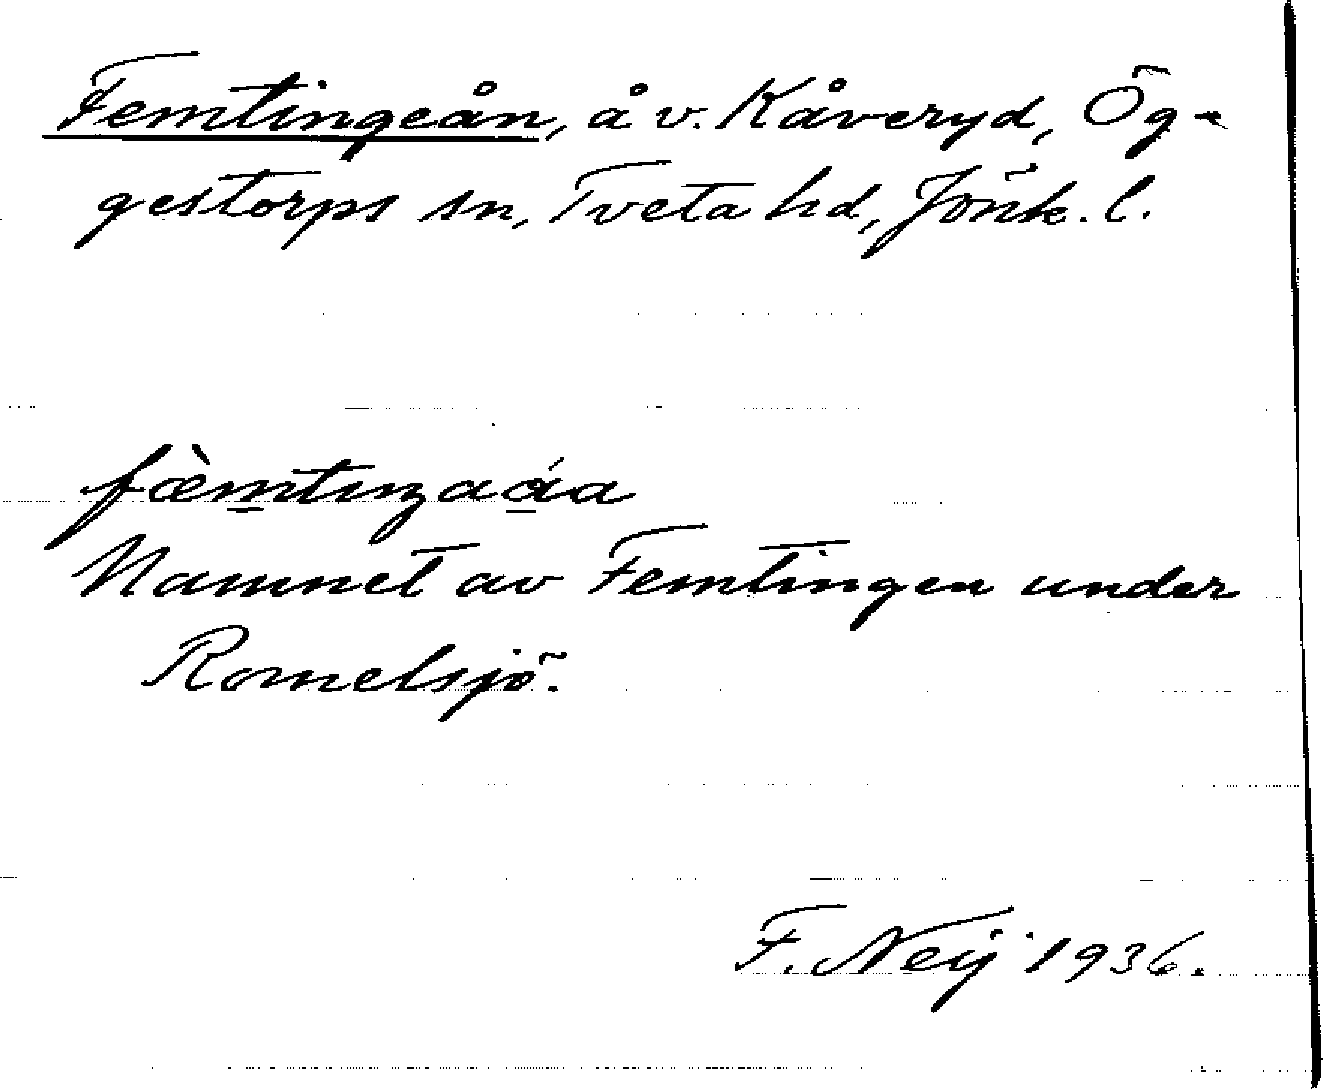 Femtingeån, å v. Kåveryd, Ög-
gestorps sn, Tveta hd, Jönk. l.
Namnet av Femtingen under
Romelsjö.
F. Neij 1936.